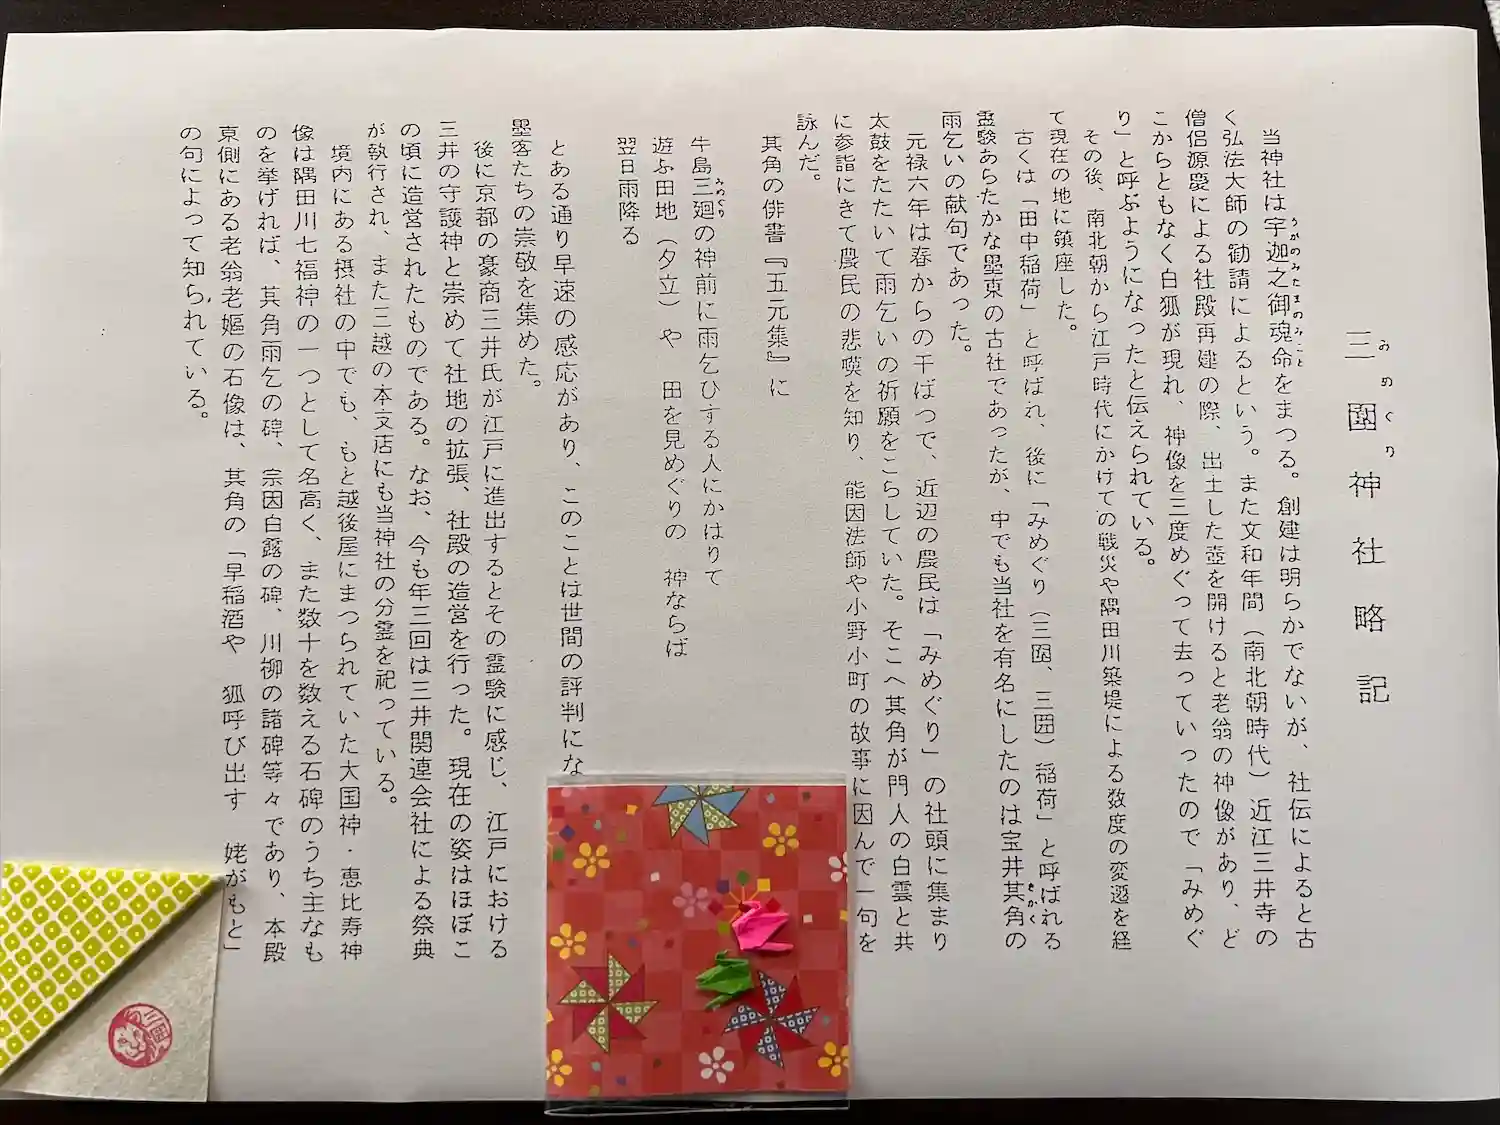 三囲神社略記
みめぐり
当神社は宇迦之御魂命をまつる。創建は明らかでないが、社伝によると古
うがのみたまのみこと
く弘法大師の勧請によるという。また文和年間(南北朝時代)近江三井寺の
僧侶源慶による社殿再建の際、出土した壺を開けると老翁の神像があり、ど
こからともなく白狐が現れ、神像を三度めぐって去っていったので「みめぐ
り」と呼ぶようになったと伝えられている。
その後、南北朝から江戸時代にかけての戦災や隅田川築堤による数度の変遷を経
て現在の地に鎮座した。
古くは「田中稲荷」と呼ばれ、後に「みめぐり(三囲、三囲)稲荷」と呼ばれる
霊験あらたかな墨東の古社であったが、中でも当社を有名にしたのは宝井其角の
きかく
雨乞いの献句であった。
元禄六年は春からの干ばつで、近辺の農民は「みめぐり」の社頭に集まり
太鼓をたたいて雨乞いの祈願をこらしていた。そこへ其角が門人の白雲と共
に参詣にきて農民の悲嘆を知り、能因法師や小野小町の故事に因んで一句を
詠んだ。
其角の俳書『五元集』に
牛島三廻の神前に雨乞ひする人にかはりて
みめぐり
遊ふ田地(夕立)や 田を見めぐりの 神ならば
翌日雨降る
とある通り早速の感応があり、このことは世間の評判にな
墨客たちの崇敬を集めた。
後に京都の豪商三井氏が江戸に進出するとその霊験に感じ、江戸における
三井の守護神と崇めて社地の拡張、社殿の造営を行った。現在の姿はほぼこ
の頃に造営されたものである。なお、今も年三回は三井関連会社による祭典
が執行され、また三越の本支店にも当神社の分霊を祀っている。
境内にある摂社の中でも、もと越後屋にまつられていた大国神・恵比寿神
像は隅田川七福神の一つとして名高く、また数十を数える石碑のうち主なも
のを挙げれば、其角雨乞の碑、宗因白露の碑、川柳の諸碑等々であり、本殿
東側にある老翁老嫗の石像は、其角の「早稲酒や 狐呼び出す 姥がもと」
の句によって知られている。
三囲